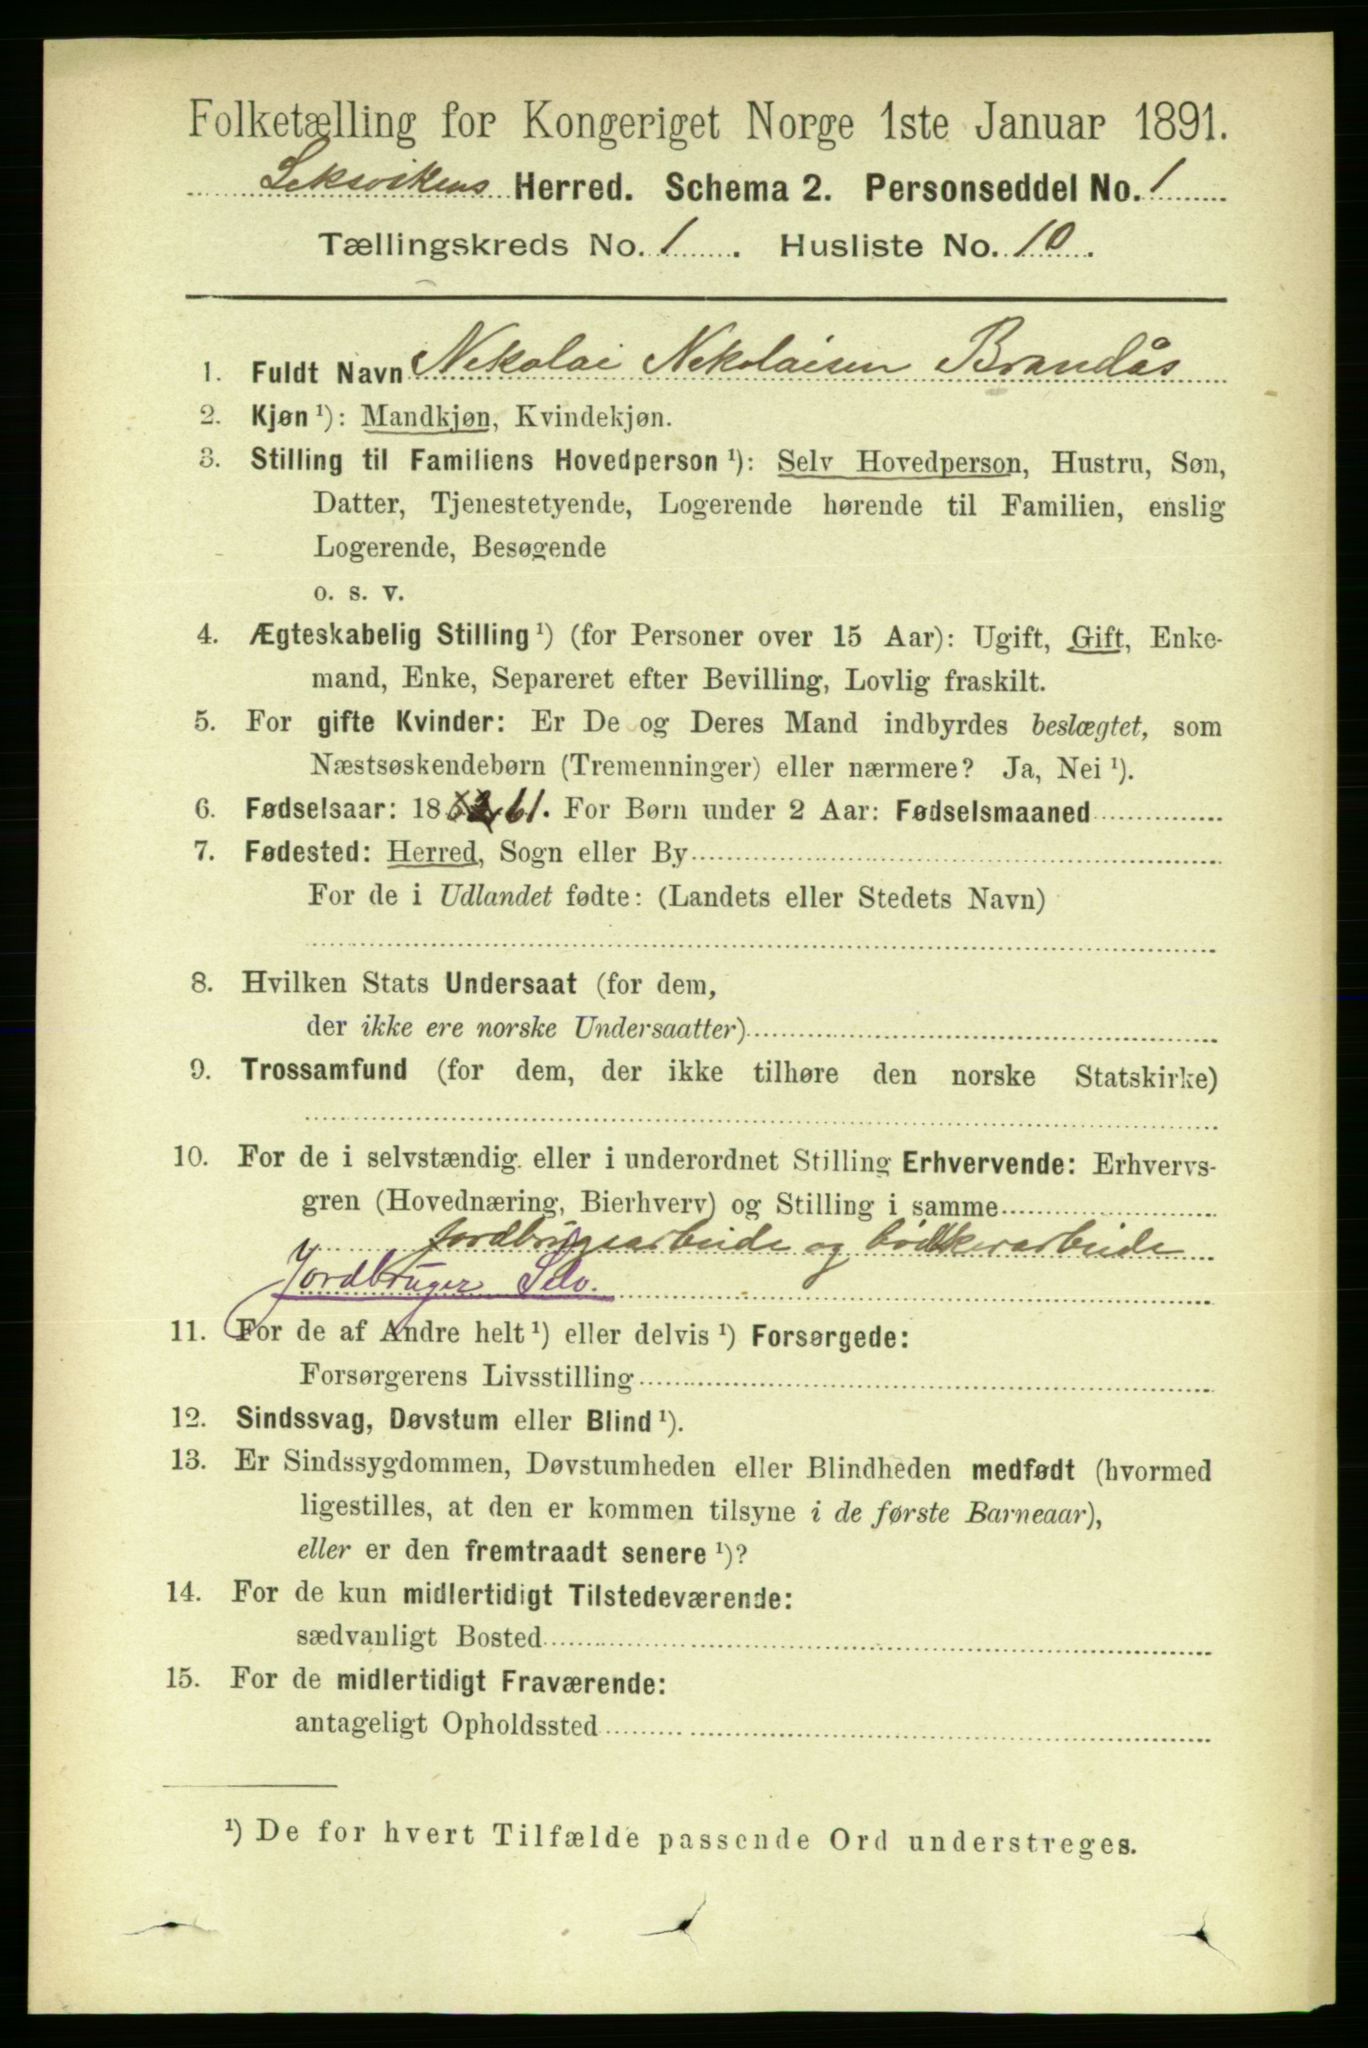 Folketælling for Kongeriget Norge 1ste Januar 1891.
Leksvikens Herred. Schema 2. Personseddel No. 1
Tællingskreds No. 1. Husliste No. 10.
1. Fuldt Navn Nekolai Nekolaisen Brandås
2. Kjøn ¹): Mandkjøn, Kvindekjøn.
3. Stilling til Familiens Hovedperson ¹): Selv Hovedperson, Hustru, Søn,
Datter, Tjenestetyende, Logerende hørende til Familien, enslig
Logerende, Besøgende
o. s. v.
4. Ægteskabelig Stilling ¹) (for Personer over 15 Aar): Ugift, Gift, Enke-
mand, Enke, Separeret efter Bevilling, Lovlig fraskilt.
5. For gifte Kvinder: Er De og Deres Mand indbyrdes beslægtet, som
Næstsøskendebørn (Tremenninger) eller nærmere? Ja, Nei ¹).
6. Fødselsaar: 18 61. For Børn under 2 Aar: Fødselsmaaned
7. Fødested: Herred, Sogn eller By
For de i Udlandet fødte: (Landets eller Stedets Navn)
8. Hvilken Stats Undersaat (for dem,
der ikke ere norske Undersaatter)
9. Trossamfund (for dem, der ikke tilhøre den norske Statskirke)
10. For de i selvstændig eller i underordnet Stilling Erhvervende: Erhvervs-
gren (Hovednæring, Bierhverv) og Stilling i samme
jordbrugsarbeide og bødkerarbeide
Jordbruger Selv.
11. For de af Andre helt ¹) eller delvis ¹) Forsørgede:
Forsørgerens Livsstilling
12. Sindssvag, Døvstum eller Blind ¹).
13. Er Sindssygdommen, Døvstumheden eller Blindheden medfødt (hvormed
ligestilles, at den er kommen tilsyne i de første Barneaar),
eller er den fremtraadt senere ¹)?
14. For de kun midlertidigt Tilstedeværende:
sædvanligt Bosted
15. For de midlertidigt Fraværende:
antageligt Opholdssted
¹) De for hvert Tilfælde passende Ord understreges.